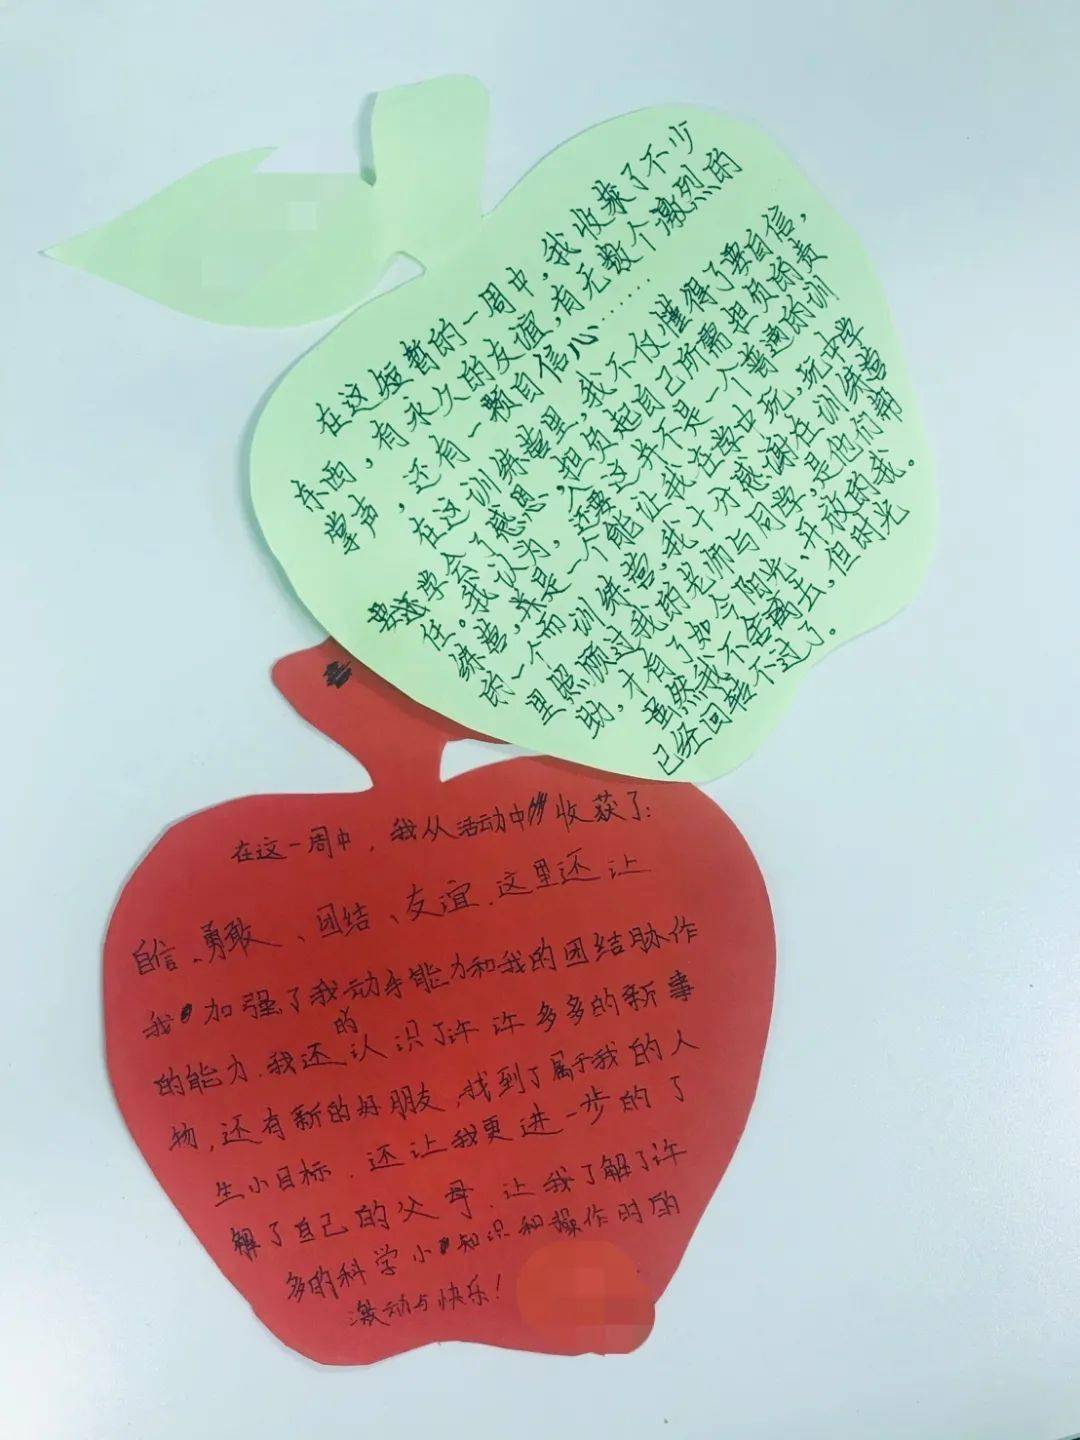 在这短暂的一周中，我收获了不少
东西，有永久的友谊，有无数个激烈的
掌声，还有一颗自信心……
在这训练营里，我不仅懂得了要自信，
要学会了感恩，担负起自己所需担负的责
任。我认为，这并不是一个普通的训
练营，而是一个能让我在学中玩，玩中学
的一个训练营，我十分感谢在训练营
里照顾过我的老师与同学，是他们帮
助，才有了如今阳光、开放的我。
虽然我不舍离去，但时光
已经回转不过了。
在这一周中，我从活动中收获了：
自信、勇敢、团结、友谊.这里还让
我加强了我动手能力和我的团结胁作
的能力.我还的认识了许许多多的新事
物，还有新的好朋友.找到了属于我的人
生小目标.还让我更进一步的了
解了自己的父母.让我了解了许
多的科学小知识和操作时的
激动与快乐！